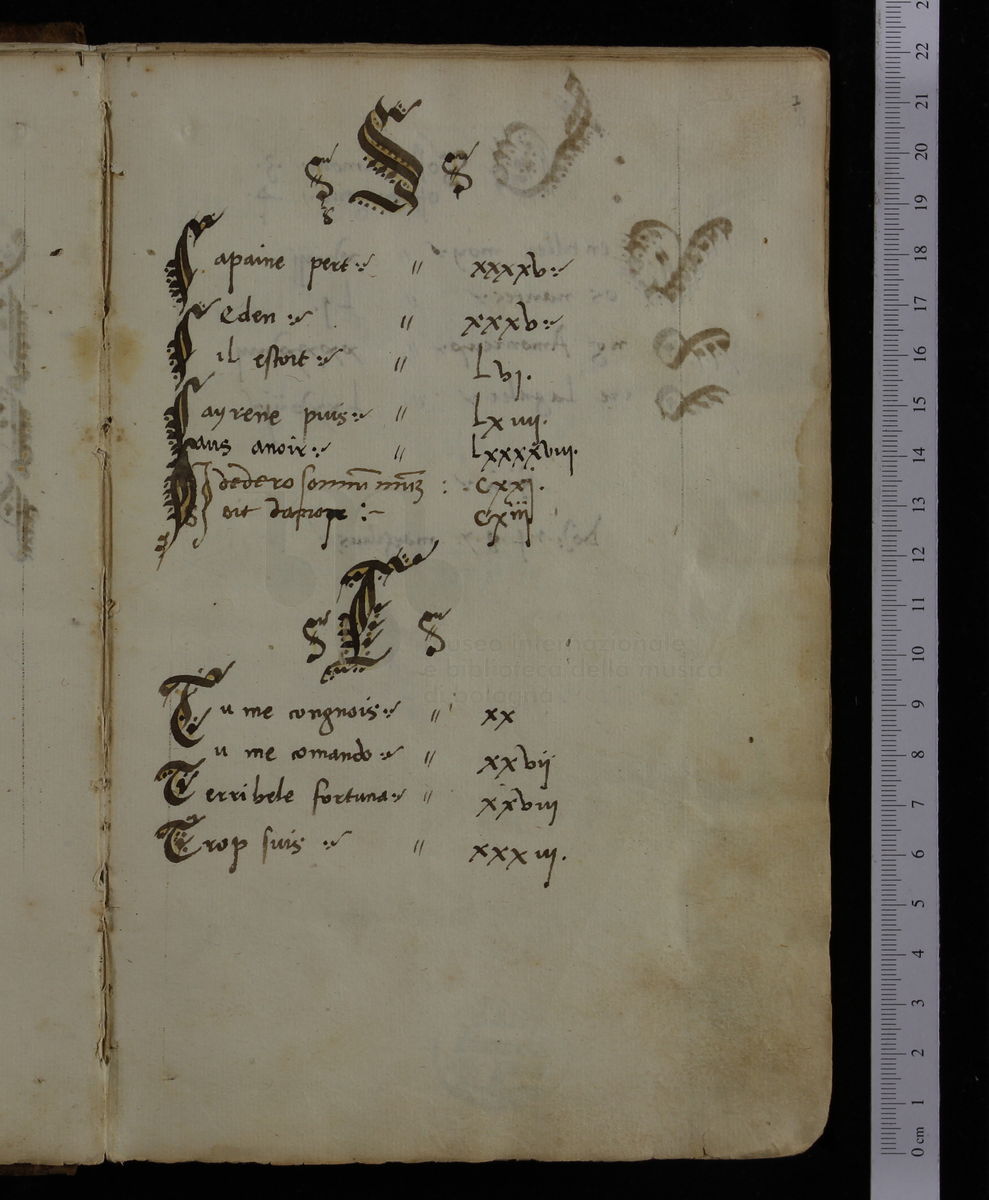 S S S
Sapaine pert xxxxv
Seden xxxv
Sil estoit Lvi.
Sayrene puis Lxiiii.
Sans avoir Lxxxxviii.
Si dedero somnū : Cxxi.
Soit Cxiii
S T S
Tu me congnois xx
Tu me comando xxvii
Terribele fortuna xxviii
Trop suis xxxiii.
museo internazionale
e biblioteca della musica
di bologna
22
21
20
19
18
17
16
15
14
13
12
11
10
9
8
7
6
5
4
3
2
1
0 cm